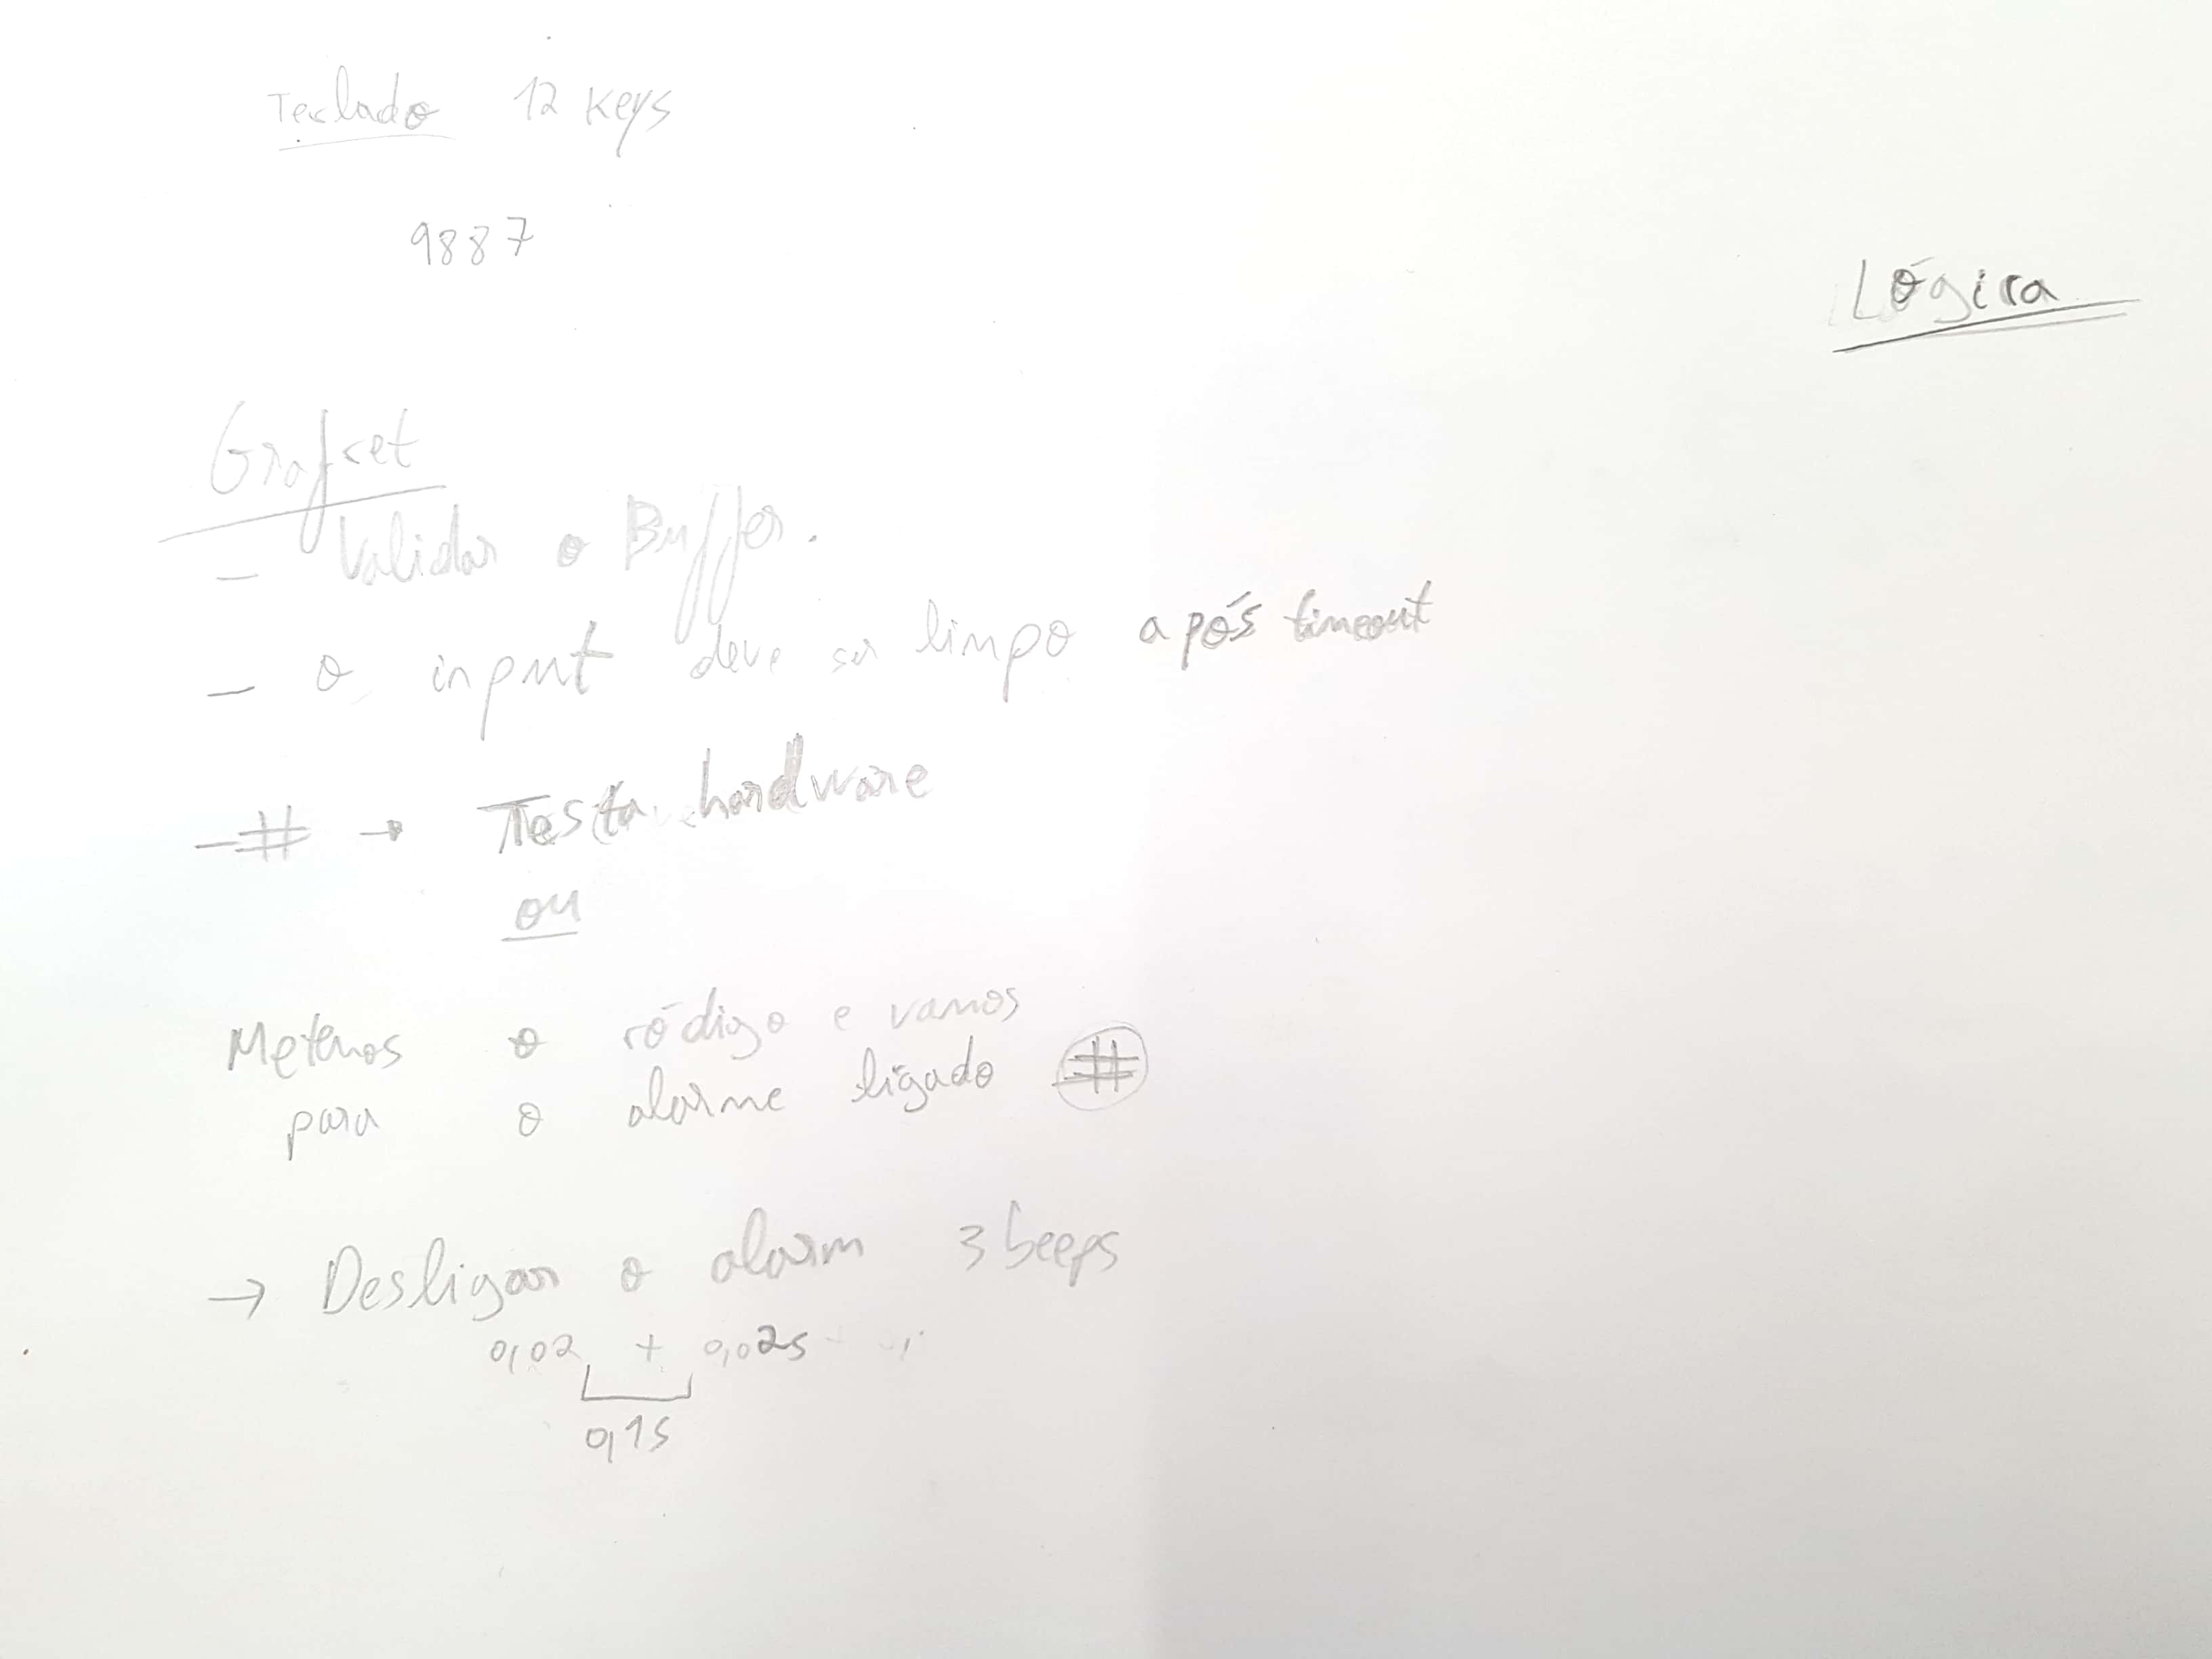 Teclado 12 Keys
9887
Lógica
Grafcet
- Validar o Buffer.
- o input deve ser limpo após timeout
- # → Testa hardware
ou
Metemos o código e vamos
para o alarme ligado #
→ Desligar o alarm 3 beeps
0,02 + 0,02s
0,1s